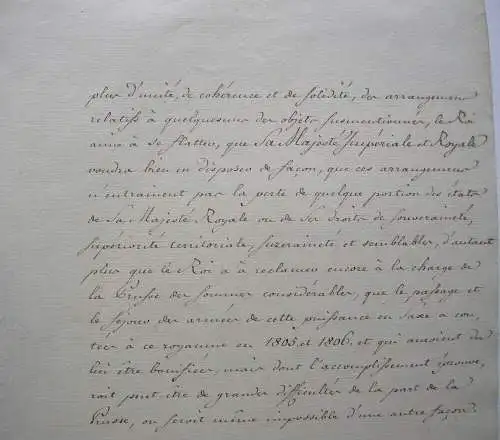 plus d'unité, de cohérence et de solidité, des arrangemens
relatifs à quelquesuns des objets susmentionnés, le Roi
aime à se flatter, que Sa Majesté Impériale et Royale
voudra bien en disposer de façon, que ces arrangemens
n'entrainent pas la perte de quelque portion des états
de Sa Majesté Royale ou de Ses droits de souveraineté,
supériorité territoriale, suzeraineté et semblables, d'autant
plus que le Roi a à réclamer encore à la charge de
la Prusse des sommes considérables, que le passage et
le séjour des armées de cette puissance en Saxe a cou,
tées à ce royaume en 1805 et 1806. et qui auroient du
lui être bonifiées, mais dont l'accomplissement éprouve,
roit peut etre de grandes difficultés de la part de la
Prusse, ou seroit même impossible d'une autre façon.